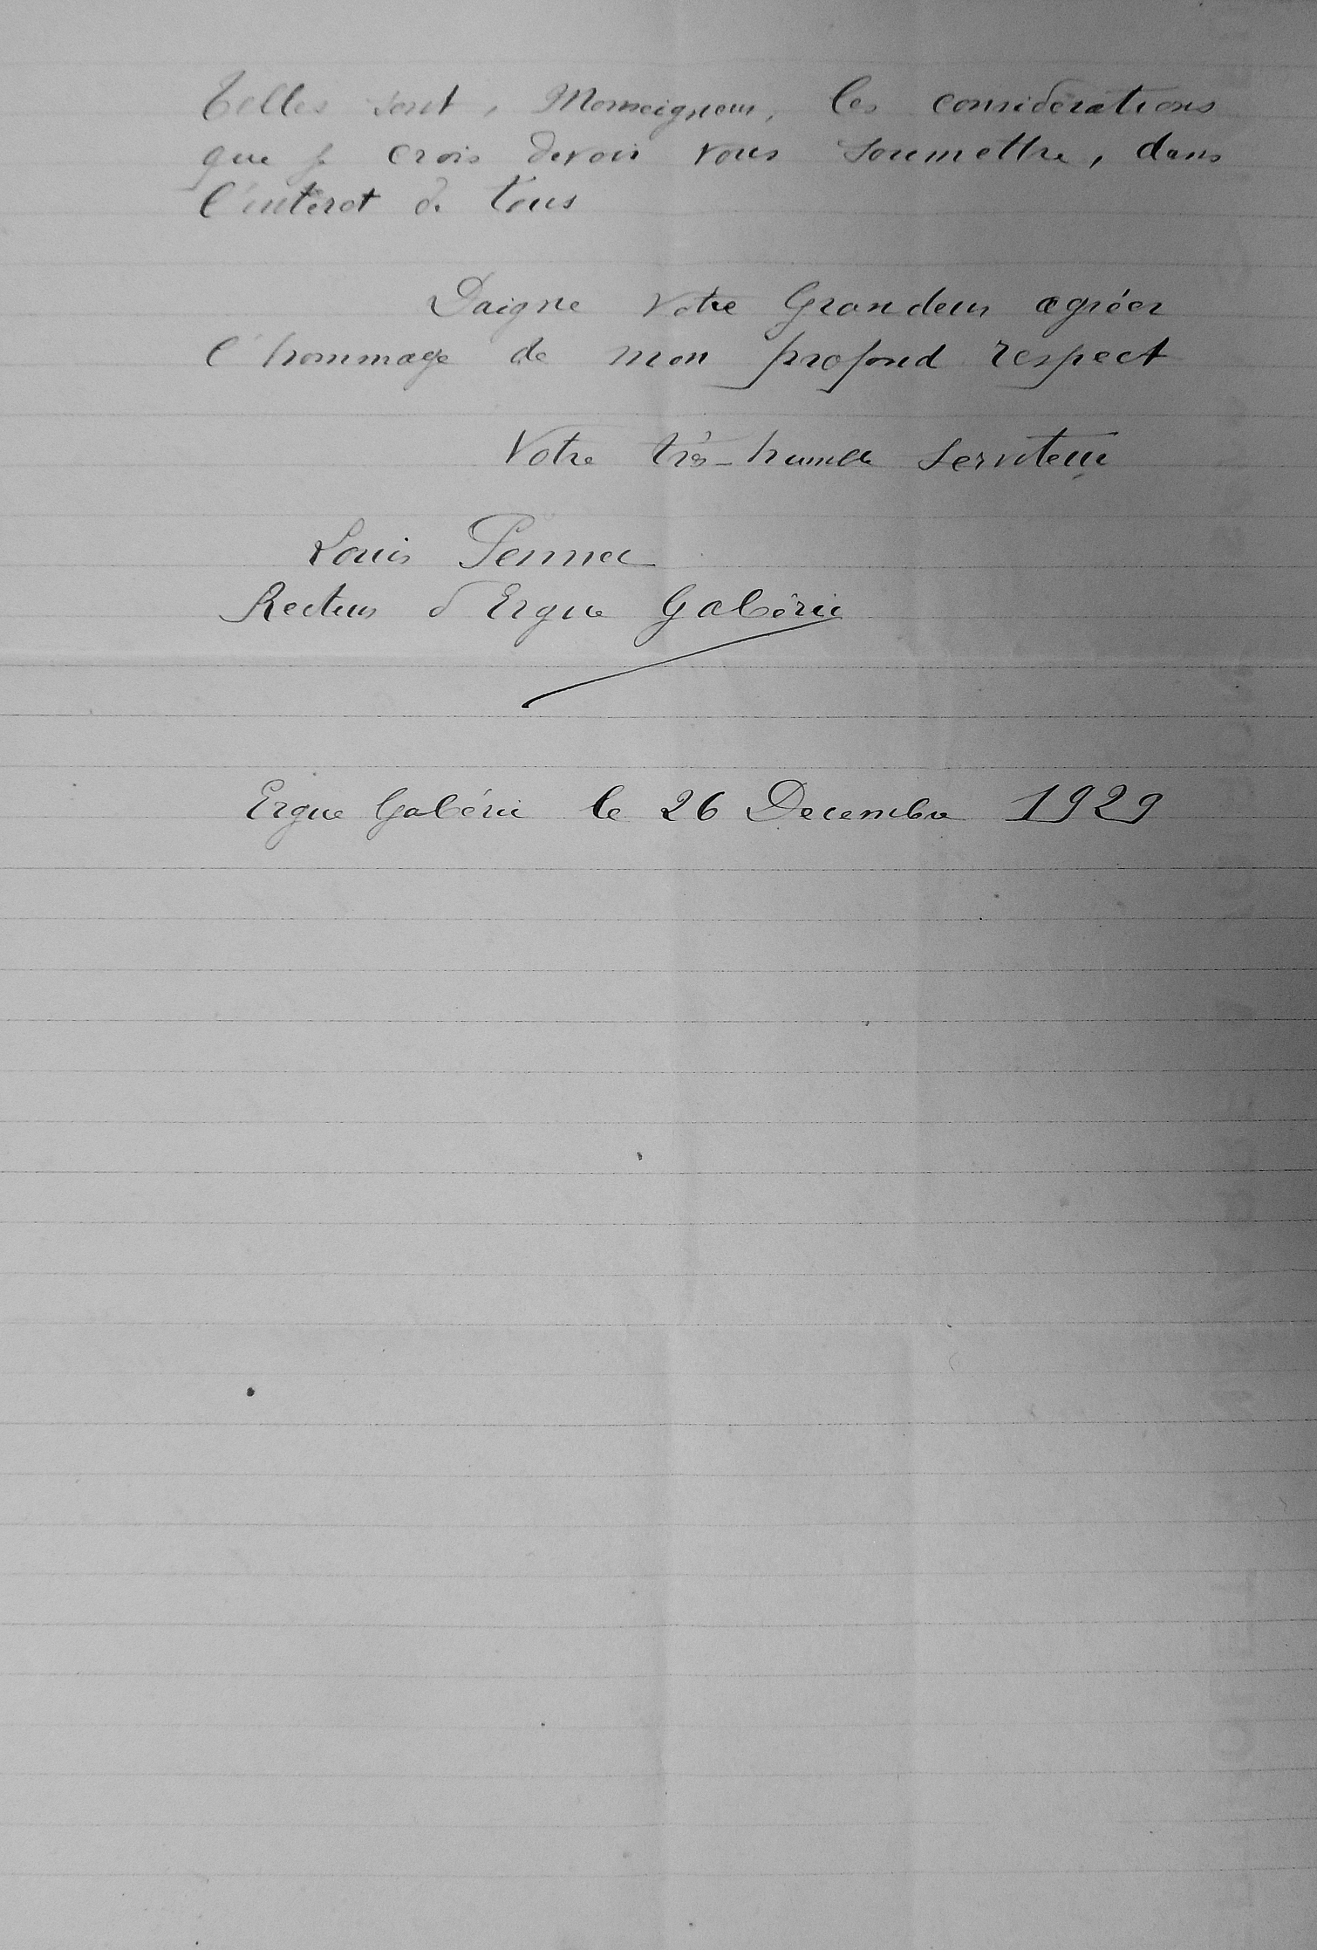 Telles sont, Monseigneur, les considérations
que je crois devoir vous soumettre, dans
l'intérêt de tous
Daigne Votre Grandeur agréer
l'hommage de mon profond respect
Votre très-humble serviteur
Louis Pennec
Recteur d'Ergué Gabéric
Ergué Gabéric le 26 Decembre 1929